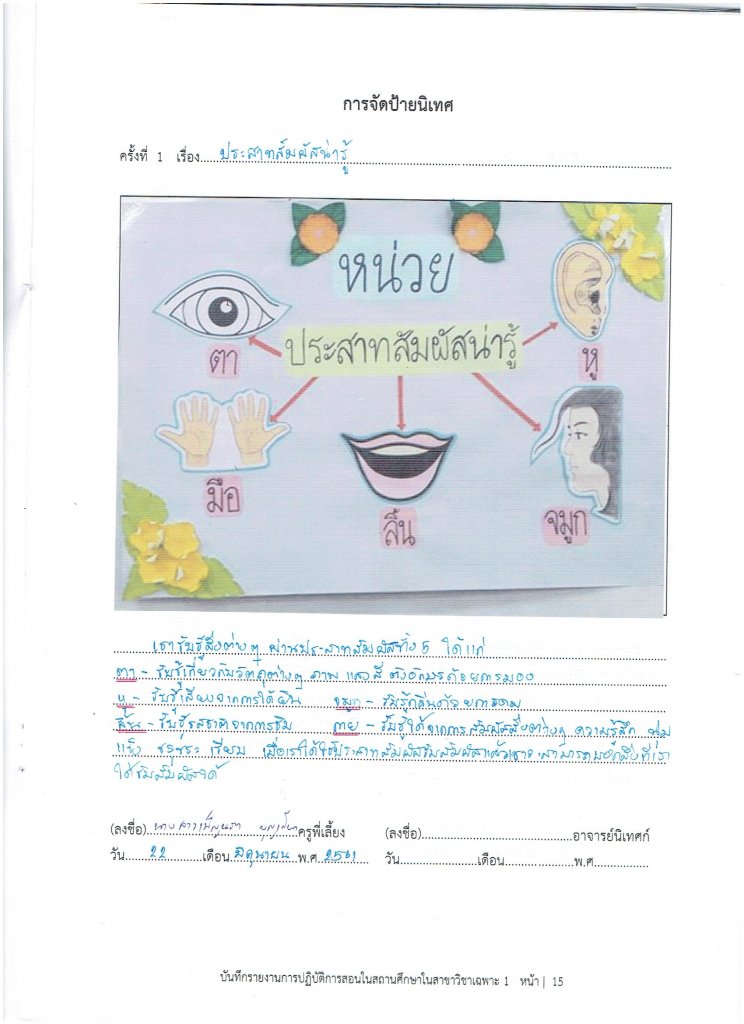 การจัดป้ายนิเทศ
ครั้งที่ 1 เรื่อง ประสาทสัมผัสน่ารู้
หน่วย
ประสาทสัมผัสน่ารู้
ตา
หู
มือ
ลิ้น
จมูก
เรารับรู้สิ่งต่างๆ ผ่านประสาทสัมผัสทั้ง 5 ได้แก่
ตา - รับรู้เกี่ยวกับวัตถุต่างๆ ภาพ แสงสี ตัวอักษรด้วยการมอง
หู - รับรู้เสียงจากการได้ยิน จมูก - รับรู้กลิ่นด้วยการดม
ลิ้น - รับรู้รสชาติจากการชิม กาย - รับรู้ได้จากการสัมผัสสิ่งต่างๆ ความรู้สึก นุ่ม
แข็ง ขรุขระ เรียบ เมื่อเราได้ใช้ประสาทสัมผัสรับสัมผัสแล้วเราจะสามารถบอกสิ่งที่เรา
ได้รับสัมผัสได้
(ลงชื่อ) นางสาว ครูพี่เลี้ยง (ลงชื่อ) อาจารย์นิเทศก์
วัน 22 เดือน มิถุนายน พ.ศ. 2561 วัน เดือน พ.ศ.
บันทึกรายงานการปฏิบัติการสอนในสถานศึกษาในสาขาวิชาเฉพาะ 1 หน้า | 15